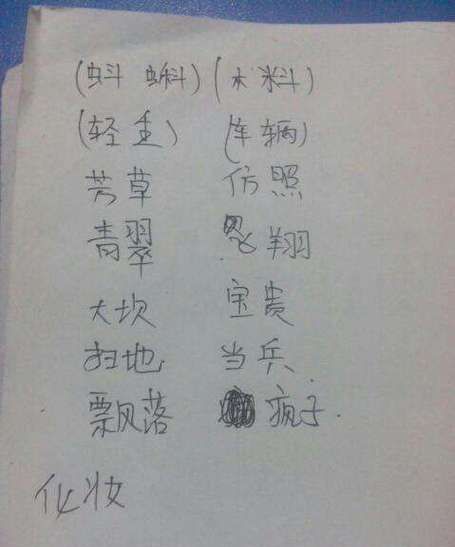 (蚪 蝌) (木 料)
(轻 重) (车 辆)
芳草 仿照
青翠 飞翔
大坎 宝贵
扫地 当兵
飘落 疯子.
化妆